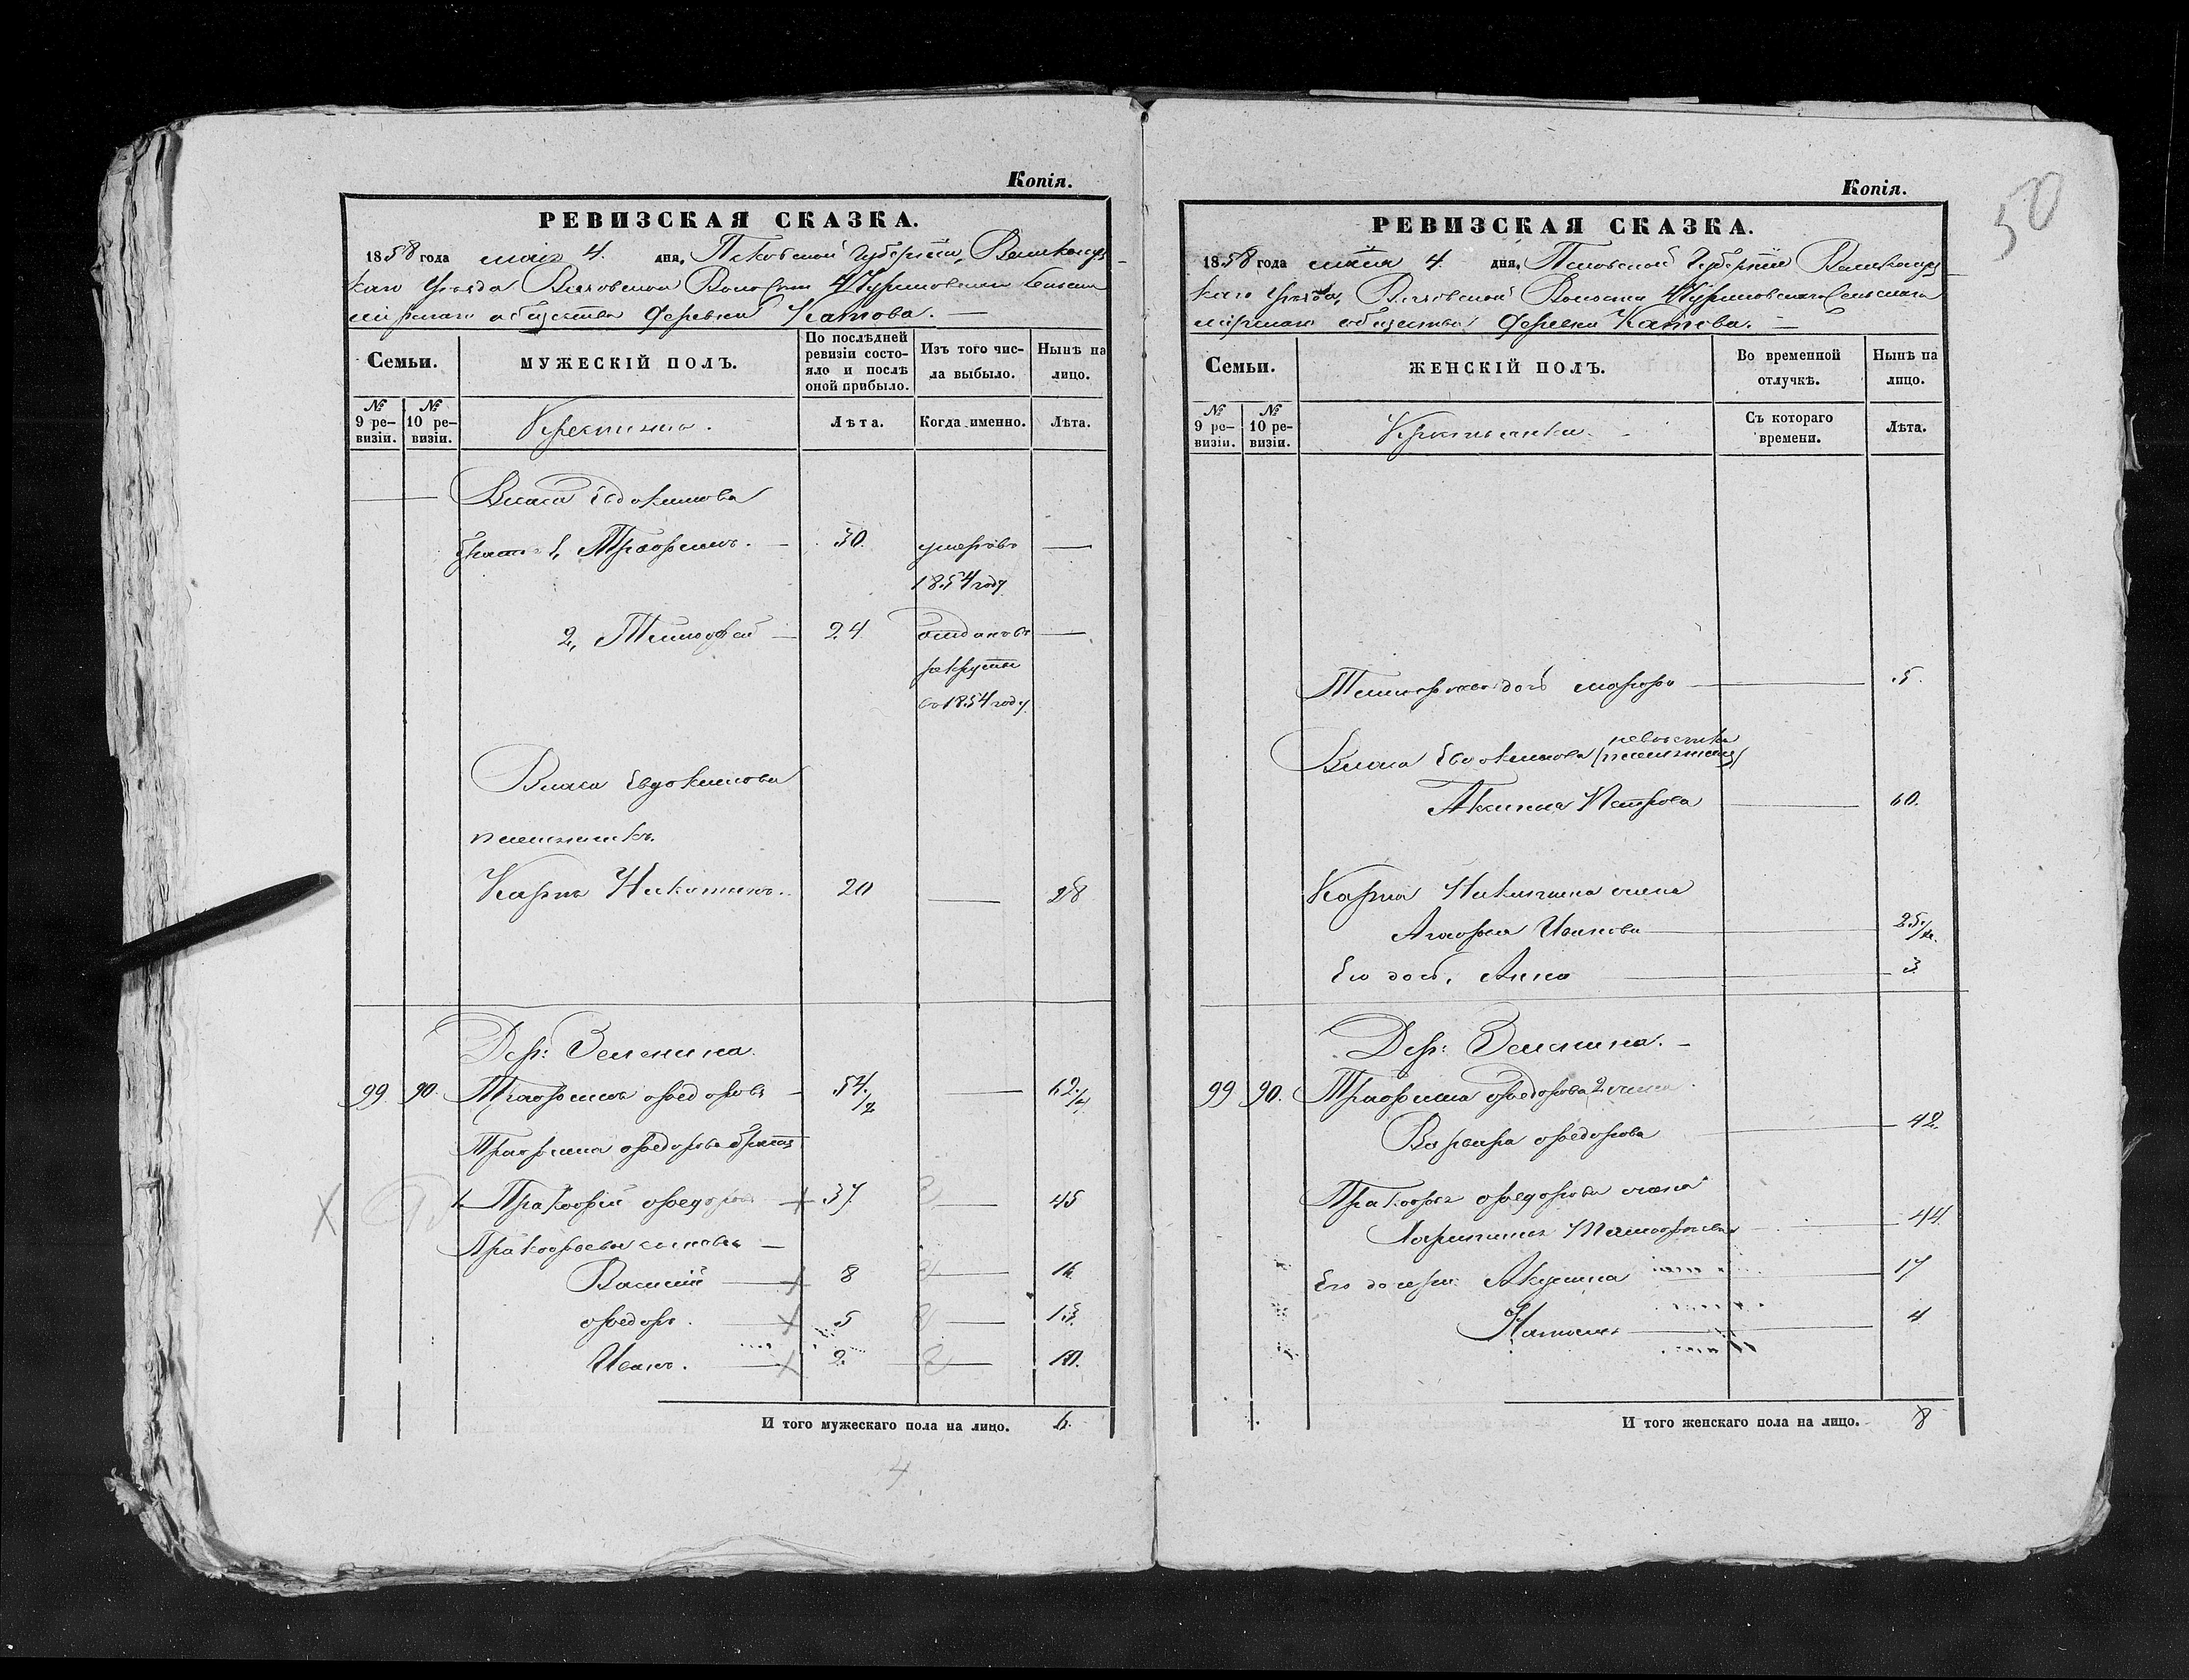 Копія.
РЕВИЗСКАЯ СКАЗКА.
1858 года маія 4. дня, Псковской Губерніи, Великолуц-
каго Уѣзда Волости
мірскаго общества деревни Катова. —
Семьи.
МУЖЕСКІЙ ПОЛЪ.
По послѣдней ревизіи состо-яло и послѣ оной прибыло.
Изъ того чис-ла выбыло.
Нынѣ на лицо.
№ 9 ре-визіи.
№ 10 ре-визіи.
Крестьяне.
Лѣта.
Когда именно.
Лѣта.
Власа Евдокимова
братья 1, Трофимъ. — 30. умеръ въ —
1854 году
2, Тимофей — 24 отданъ въ —
рекруты
въ 1854 году
Власа Евдокимова
племянникъ.
Карпъ Никитинъ. 20 — 28
Дер: Зеленина.
99 90. Трофимъ Федоровъ — 54./2 — 62./2
Трофима Федорова братья
1. Прокофій Федоровъ 37. — 45
Прокофьевы сыновья —
Василій — 8 — 16.
Федоръ. — 5 — 13.
Иванъ. — 2. — 10.
И того мужескаго пола на лицо. 6.
4
Копія.
50
РЕВИЗСКАЯ СКАЗКА.
1858 года маія 4. дня, Псковской Губерніи Великолуц-
каго Уѣзда, Волости Сельскаго
мірскаго общества деревни Катова. —
Семьи.
ЖЕНСКІЙ ПОЛЪ.
Во временной отлучкѣ.
Нынѣ на лицо.
№ 9 ре-визіи.
№ 10 ре-визіи.
Крестьянки. —
Съ котораго времени.
Лѣта.
Тимофея дочь — 5.
невѣстка
Власа Евдокимова
Акилина Петрова — 60.
Карпа Никитина жена
Агафья Иванова — 25./
Его дочь, Анна — 3
Дер: Зеленина. —
99 90. Трофима Федорова 2 жена
Варвара Федорова — 42.
Прокофья Федорова жена
Тимофѣева — 44.
Его дочери: Акулина — 17
Наталья — 4
И того женскаго пола на лицо. 8